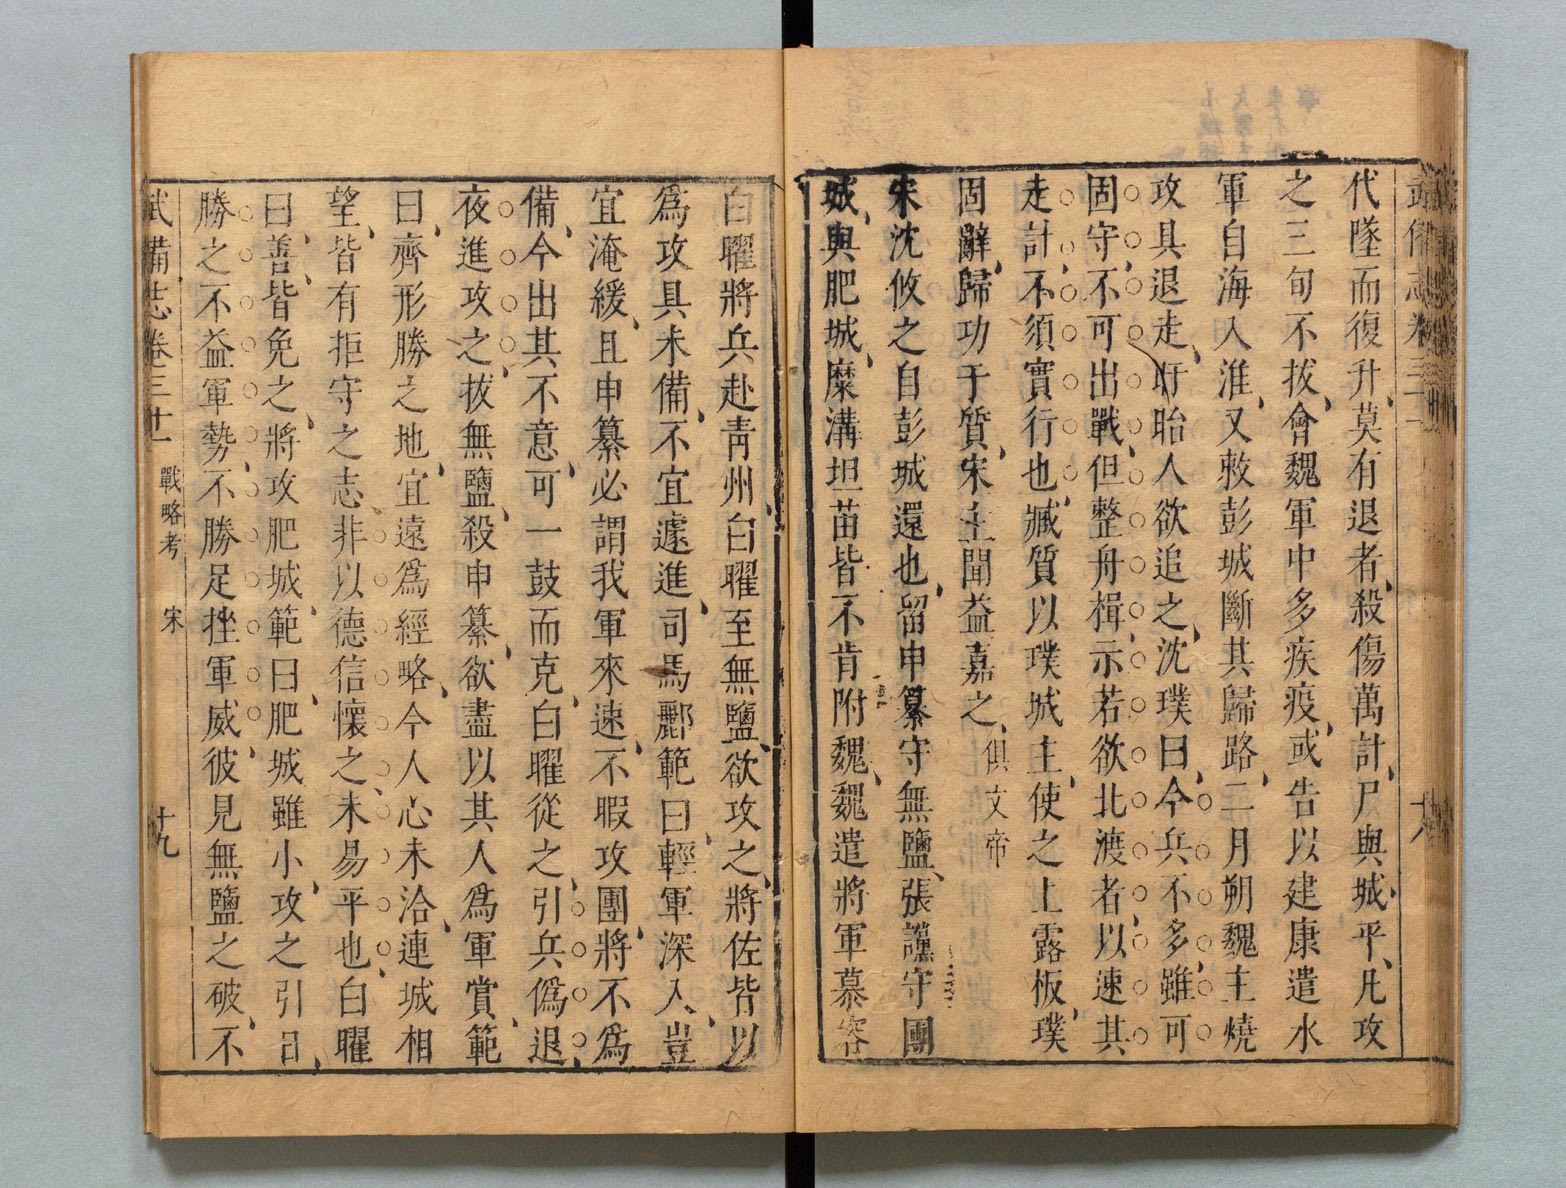 武備志卷三十一
十八
代墜而復升、莫有退者、殺傷萬計、尸與城平、凡攻
之三旬不拔、會魏軍中多疾疫、或告以建康遣水
軍自海入淮、又敕彭城斷其歸路、二月朔魏主燒
攻具退走、盱眙人欲追之、沈璞曰、今兵不多、雖可
固守、不可出戰、但整舟楫、示若欲北渡者、以速其
走計、不須實行也、臧質以璞城主、使之上露板、璞
固辭、歸功于質、宋主聞益嘉之、俱文帝
宋沈攸之自彭城還也、留申纂守無鹽、張讜守團
城、與肥城、糜溝垣苗皆不肯附魏、魏遣將軍慕容
白曜將兵赴靑州、白曜至無鹽、欲攻之、將佐皆以
爲攻具未備、不宜遽進、司馬酈範曰、輕軍深入、豈
宜淹緩、且申纂必謂我軍來速、不暇攻圍、將不爲
備、今出其不意、可一鼓而克、白曜從之、引兵僞退、
夜進攻之、拔無鹽、殺申纂、欲盡以其人爲軍賞、範
曰、齊形勝之地、宜遠爲經略、今人心未洽、連城相
望、皆有拒守之志、非以德信懷之、未易平也、白曜
曰、善、皆免之、將攻肥城、範曰、肥城雖小、攻之引日、
勝之不益軍勢、不勝足挫軍威、彼見無鹽之破、不
武備志卷三十一 戰略考 宋 十九